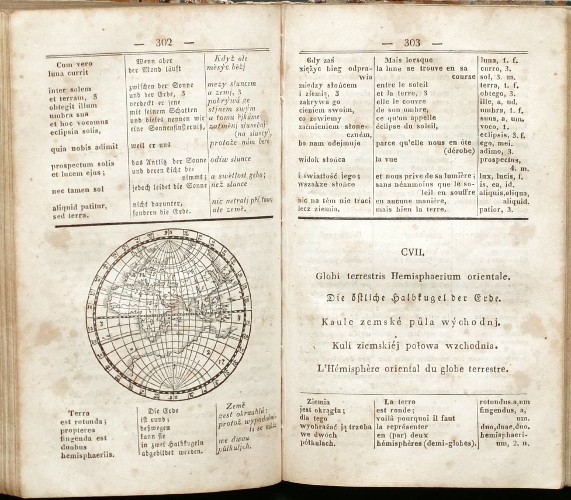 — 302 —
Cum vero
luna currit
inter solem
et terram, 3
obtegit illum
umbra sua
et hoc vocamus
eclipsin solis,
quia nobis adimit
prospectum solis
et lucem ejus;
nec tamen sol
aliquid patitur,
sed terra.
Wenn aber
der Mond läuft
zwischen der Sonne
und der Erde, 3
verdeckt er jene
mit seinem Schatten
und dieses nennen wir
eine Sonnenfinsterniß,
weil er uns
das Antlitz der Sonne
und deren Licht benimmt;
jedoch leidet die Sonne
nicht darunter,
sondern die Erde.
Když ale
měsýc běžj
mezy sluncem
a zemj, 3
pokrývá ge
stjnem swým
a tomu řjkáme
zatměnj slunečnj
(na slunci),
protože nám béře
odiw slunce
a swětlost geho;
než slunce
nic netrpj při tom,
ale země.
Terra
est rotunda;
propterea
fingenda est
duobus
hemisphaeriis.
Die Erde
ist rund;
deßwegen
kann sie
in zwei Halbkugeln
abgebildet werden.
Země
gest okrauhlá;
we dwou
půlkuljch.
— 303 —
Gdy zaś
xiężyc bieg odprawia
miedzy słońcem
i ziemią, 3
zakrywa go
cieniem swoim,
co zowiemy
zaćmieniem słoneczném,
bo nam odejmuje
widok słońca
i światłość jego;
wszakże słońce
nic na tém nie traci
lecz ziemia.
Mais lorsque
la lune se trouve en sa
course
entre le soleil
et la terre, 3
elle le couvre
de son ombre,
ce qu'on appelle
éclipse du soleil,
parce qu'elle nous en ôte
(dérobe)
la vue
et nous prive de sa lumière;
sans néanmoins que le soleil
en souffre
en aucune manière,
mais bien la terre.
luna, 1. f.
curro, 3.
sol, 3. m.
terra, 1. f.
obtego, 3.
ille, a, ud.
umbra, 1. f.
suus, a, um.
voco, 1.
eclipsis, 3. f.
ego, mei.
adimo, 3.
prospectus,
4. m.
lux, lucis, f.
is, ea, id.
aliquis, aliqua,
aliquid.
patior, 3.
CVII.
Globi terrestris Hemisphaerium orientale.
Die östliche Halbkugel der Erde.
Kaule zemské půla wýchodnj.
Kuli ziemskiéj połowa wzchodnia.
L'Hémisphère oriental du globe terrestre.
Ziemia
jest okrągła;
dla tego
wyobrażać ją trzeba
we dwóch
półkulach.
La terre
est ronde;
voilà pourquoi il faut
la représenter
en (par) deux
hémisphères (demi-globes).
rotundus, a, um
fingendus, a,
um.
duo, duae, duo.
hemisphaerium,
2. n.